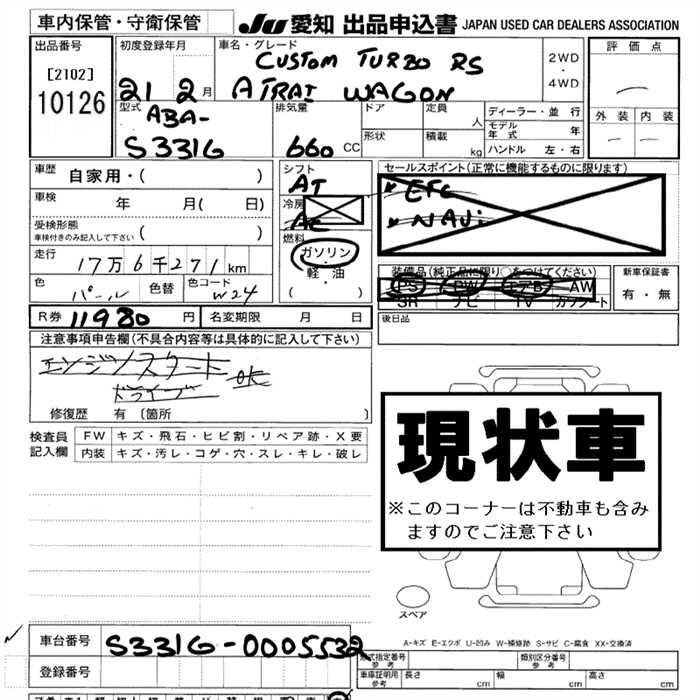 車内保管・守衛保管
JU 愛知 出品申込書 JAPAN USED CAR DEALERS ASSOCIATION
出品番号
[2102]
10126
初度登録年月
21 2月
車名・グレード
CUSTOM TURBO RS
ATRAI WAGON
2WD
・
4WD
評価点
外装 内装
型式
ABA-
S331G
排気量
660 CC
ドア
定員
人
形状
積載
kg
ディーラー・並行
モデル年式
年
ハンドル 左・右
車歴
自家用・( )
車検
年 月( 日)
受検形態
車検付きのみ記入して下さい ( )
走行
17万6千271km
色
パール
色替
色コード
W24
シフト
AT
冷房
AC
燃料
ガソリン
・
軽油
( )
セールスポイント(正常に機能するものに限ります)
* ETC
* NAVi
装備品(純正品に限り○をつけてください)
PS PW エアB AW
SR ナビ TV カワシート
新車保証書
有・無
R券 11980 円
名変期限 月 日
後日品
注意事項申告欄(不具合内容等は具体的に記入して下さい)
エンジンスタート
ドライブ
OK
修復歴 有〔箇所 〕
検査員
記入欄
FW キズ・飛石・ヒビ割・リペア跡・X要
内装 キズ・汚レ・コゲ・穴・スレ・キレ・破レ
現状車
※このコーナーは不動車も含み
ますのでご注意下さい
スペア
A-キズ E-エクボ U-凹み W-補修跡 S-サビ C-腐食 XX-交換済
車台番号 S331G-0005532
登録番号
型式指定番号
参考
類別区分番号
参考
車庫証明用
参考
長さ cm
幅 cm
高さ cm